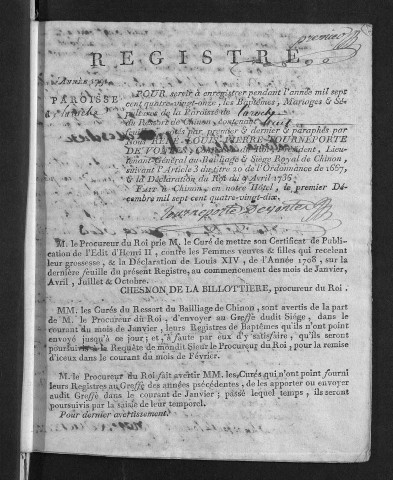 premier
REGISTRE
ANNÉE 1791.
PAROISSE
POUR servir à enregistrer pendant l'année mil sept
cent quatre-vingt-onze, les Baptêmes, Mariages & Sé-
pultures de la Paroisse de
du Ressort de Chinon, contenant huit
par premier & dernier & paraphés par
Nous RENÉ-LOUIS-PIERRE-TOURNEPORTE
DE Président, Lieu-
tenant-Général au Bailliage & Siège Royal de Chinon,
suivant l'Article 3 du titre 20 de l'Ordonnance de 1667,
& la Déclaration du Roi du 9 Avril 1736;
FAIT à Chinon, en notre Hôtel, le premier Dé-
cembre mil sept cent quatre-vingt-dix.
M. le Procureur du Roi prie M. le Curé de mettre son Certificat de Publica-
tion de l'Edit d'Henri II, contre les Femmes veuves & filles qui recelent
leur grossesse, & la Déclaration de Louis XIV, de l'Année 1708, sur la
dernière feuille du présent Registre, au commencement des mois de Janvier,
Avril, Juillet & Octobre.
CHESNON DE LA BILLOTTIERE, procureur du Roi.
MM. les Curés du Ressort du Bailliage de Chinon, sont avertis de la part
de M. le Procureur du Roi, d'envoyer au Greffe dudit Siège, dans le
courant du mois de Janvier, leurs Registres de Baptêmes qu'ils n'ont point
envoyé jusqu'à ce jour; et, à faute par eux d'y satisfaire, qu'ils seront
poursuivis à la Requête de mondit Sieur le Procureur du Roi, pour la remise
d'iceux dans le courant du mois de Février.
M. le Procureur du Roi fait avertir MM. les Curés qui n'ont point fourni
leurs Registres au Greffe des années précédentes, de les apporter ou envoyer
audit Greffe dans le courant de Janvier; passé lequel temps, ils seront
poursuivis par la saisie de leur temporel.
Pour dernier avertissement.